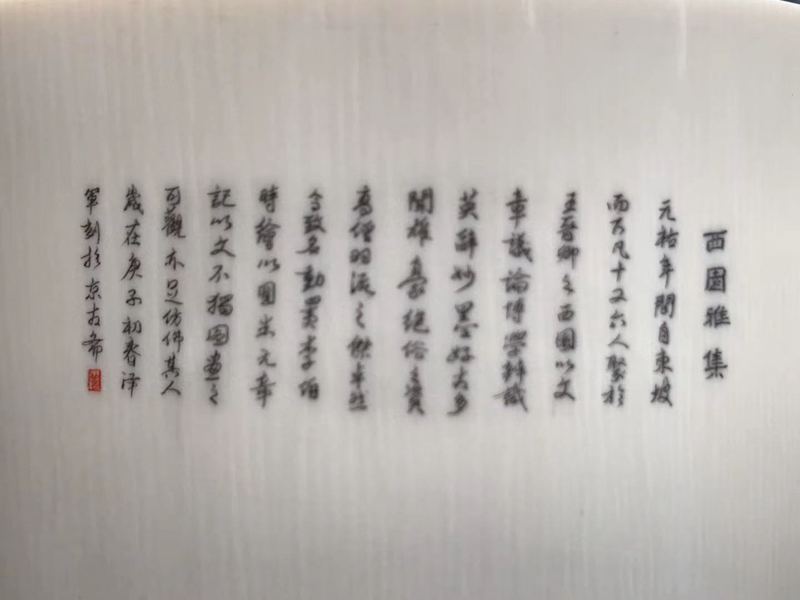 西園雅集
元祐年間自東坡
而下凡十又六人聚於
王晉卿之西園以文
章議論博學辨識
英辭妙墨好古多
聞雄豪絕俗之資
高僧羽流之傑卓然
高致名動四夷李伯
時繪以圖米元章
記以文不獨圖畫之
可觀亦足仿佛其人
歲在庚子初春澤
軍刻於京古希